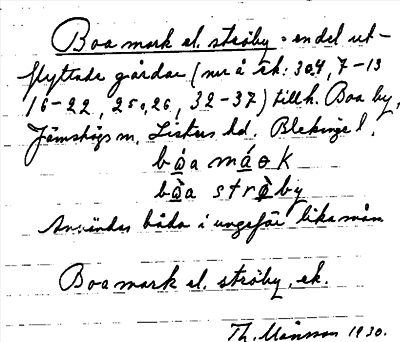 Boa mark el. ströby = en del ut-
flyttade gårdar (nu å ek: 304, 7-13
16-22, 25o,26, 32-37) tillh. Boa by,
Jämshögs m, Listers hd. Blekinge l.
bòa máok
bòa stròby
Användes båda i ungefär lika mån
Boa mark el. ströby, ek.
Th. Månsson 1930.